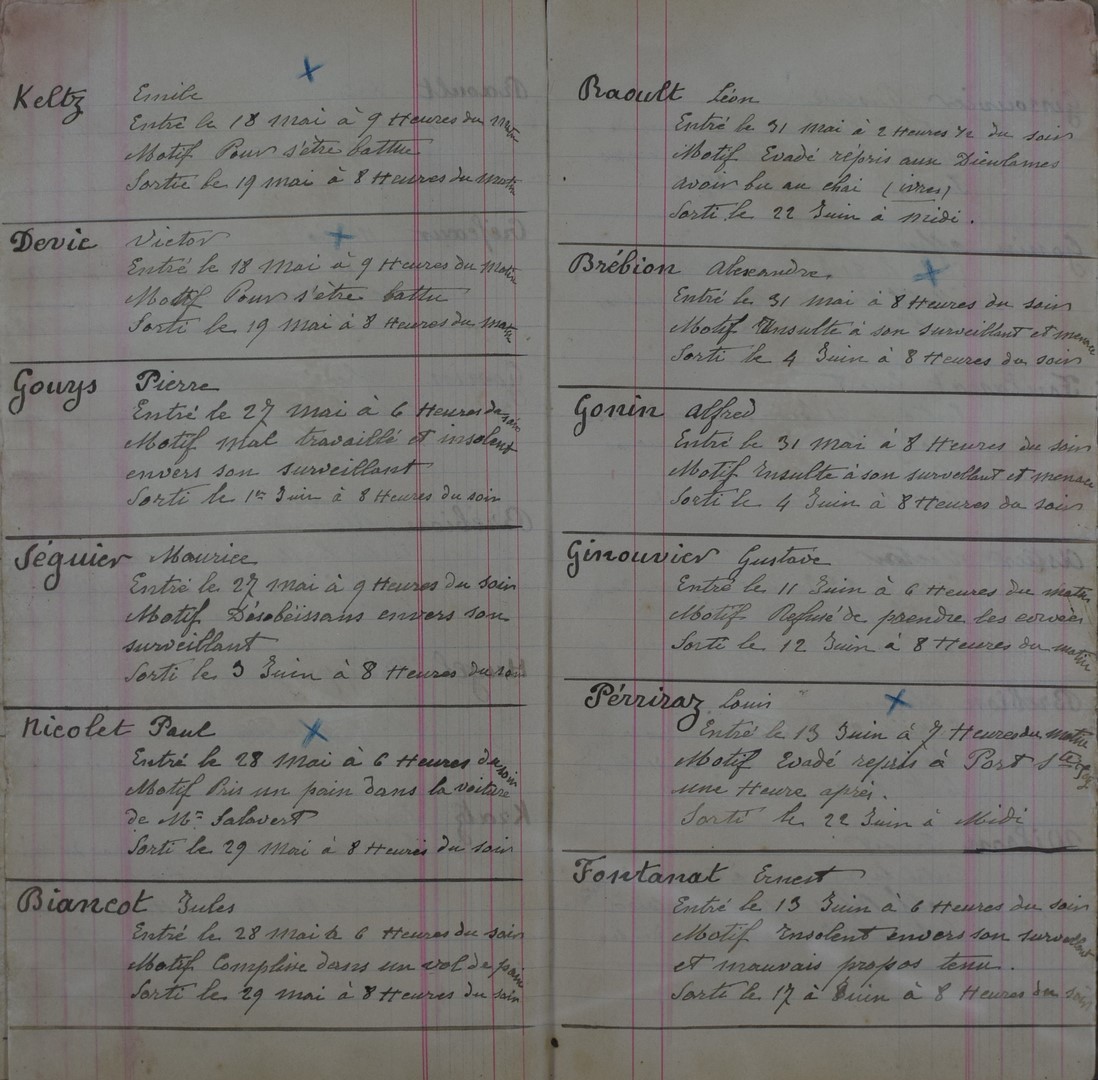 Keltz Emile
Entré le 18 mai à 9 Heures du matin
Motif Pour s'être battu
Sortie le 19 mai à 8 Heures du matin
Devic Victor
Entré le 18 mai à 9 Heures du matin
Motif Pour s'être battu
Sorti le 19 mai à 8 Heures du matin
Gouys Pierre
Entré le 27 mai à 6 Heures du soir
Motif mal travaillé et insolent
envers son surveillant
Sorti le 1er Juin à 8 Heures du soir
Séguier Maurice
Entré le 27 mai à 9 Heures du soir
Motif Désobéissans envers son
surveillant
Sorti le 3 Juin à 8 Heures du soir
Nicolet Paul
Entré le 28 mai à 6 Heures du soir
Motif Pris un pain dans la voiture
de Mr Salavert
Sorti le 29 mai à 8 Heures du soir
Biancot Jules
Entré le 28 mai à 6 Heures du soir
Motif Complice dans un vol de pain
Sorti le 29 mai à 8 Heures du soir
Raoult Léon
Entré le 31 mai à 2 Heures ½ du soir
Motif Evadé répris aux
avoir bu au chai (ivres)
Sorti le 22 Juin à midi.
Brébion Alexandre
Entré le 31 mai à 8 Heures du soir
Motif Insulte à son surveillant et menace
Sorti le 4 Juin à 8 Heures du soir
Gonin Alfred
Entré le 31 mai à 8 Heures du soir
Motif Insulte à son survellant et menace
Sorti le 4 Juin à 8 Heures du soir
Ginouvier Gustave
Entré le 11 Juin à 6 Heures du matin
Motif Refusé de prendre les corvées
Sorti le 12 Juin à 8 Heures du matin
Pérriraz Louis
Entré le 13 Juin à 7 Heures du matin
Motif Evadé repris à Port Ste
une Heure aprés.
Sorti le 22 Juin à Midi
Fontanat Ernest
Entré le 13 Juin à 6 Heures du soir
Motif Insolent envers son surveillant
et mauvais propos tenu.
Sorti le 17 à Juin à 8 Heures du soir